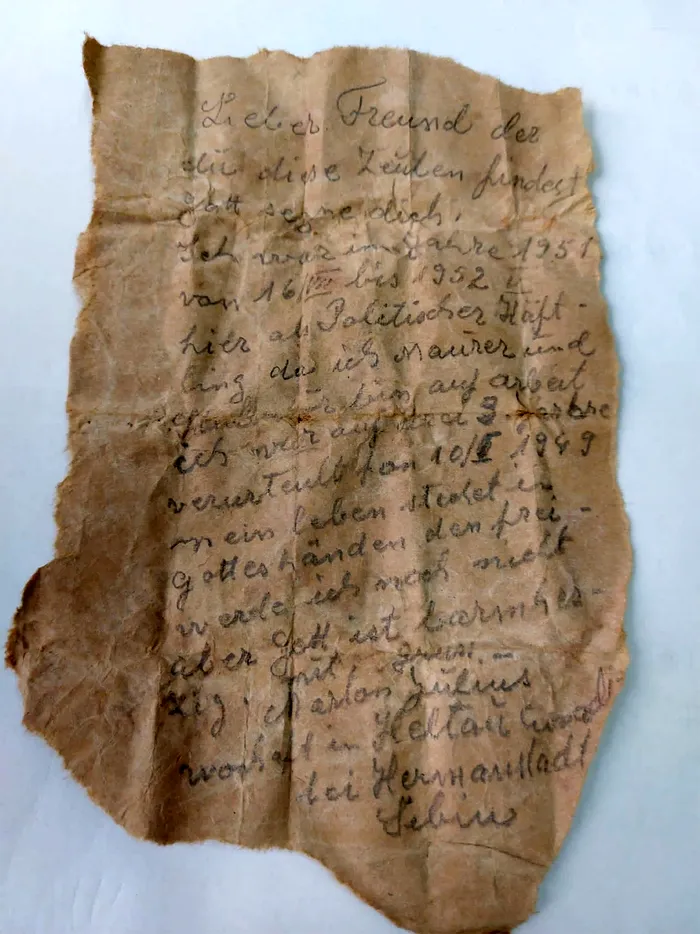 Lieber Freund der
du diese Zeulen findest
gott segne dich.
Ich war im Jahre 1951
von 16/VIII bis 1952 II
hier als Politischer Häft-
ling da ich Maurer und
bin auf arbeit
ich war auf 3 Jahre
verurteult fon 10/I 1949
mein leben stehet in
gotteshänden den frei-
werde ich noch nicht
aber gott ist barmher-
zig. mit gruss. –
Marton Julius
wonhaft in Heltau
bei Hermanstadt
Sebiu